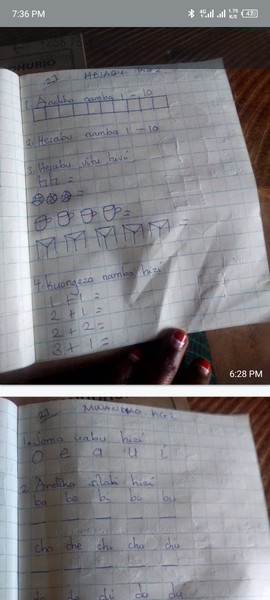 7:36 PM
HESABU KG2
1. Andika namba 1 - 10
2. Hesabu namba 1 - 10
3. Hesabu vitu hivi
=
=
=
=
4. Kuongeza namba hizi
1 + 1 =
2 + 1 =
2 + 2 =
3 + 1 =
6:28 PM
MWANDIKO KG2
1. Soma irabu hizi
o e a u i
2. Andika silabi hizi
ba be bi bo bu
cha che chi cho chu
da de di do du